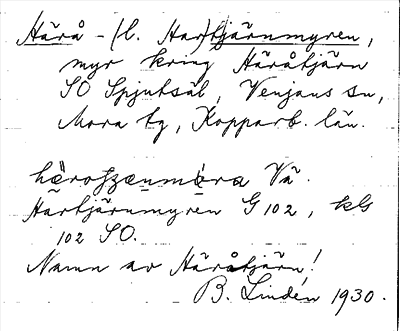 Härå - (l. Har)tjärnmyren,
myr kring Häråtjärn
SO Spjutsäl, Venjans sn,
Mora tg, Kopparb. län.
Vä.
Härtjärnmyren G 102, kls
102 SO.
Namn av Häråtjärn!
B. Lindén 1930.